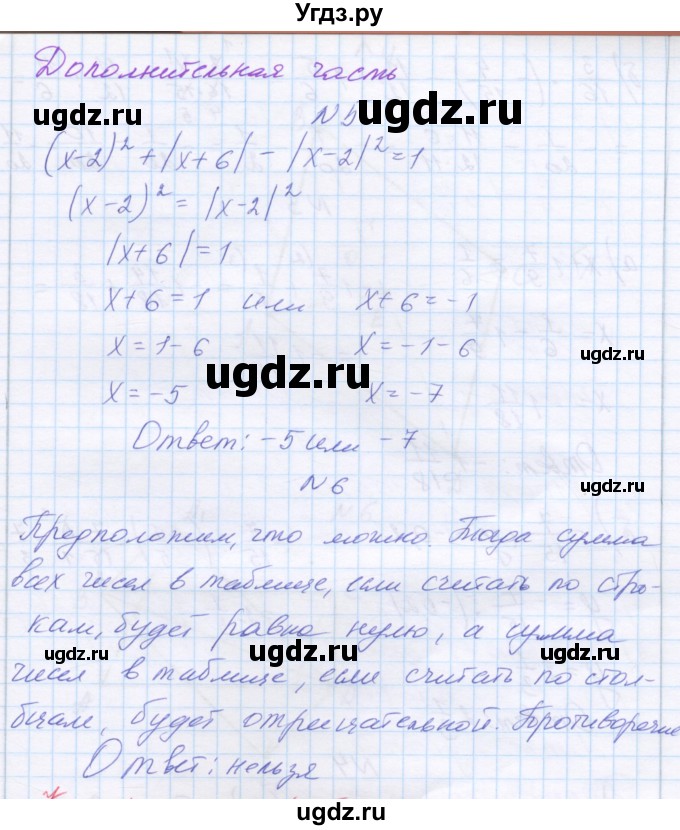 Угдз.ру
Дополнительная часть
N 5
(x-2)² + |x+6| - |x-2|² = 1
(x-2)² = |x-2|²
|x+6| = 1
x+6=1 или x+6=-1
x=1-6 x=-1-6
x=-5 x=-7
Ответ: -5 или -7
N 6
Предположим, что можно. Тогда сумма
всех чисел в таблице, если считать по стро-
кам, будет равна нулю, а сумма
чисел в таблице, если считать по стол-
бцам, будет отрицательной. Противоречие
Ответ: нельзя
ugdz.ru
ugdz.ru
ugdz.ru
ugdz.ru
ugdz.ru
ugdz.ru
ugdz.ru
ugdz.ru
ugdz.ru
ugdz.ru
ugdz.ru
ugdz.ru
ugdz.ru
ugdz.ru